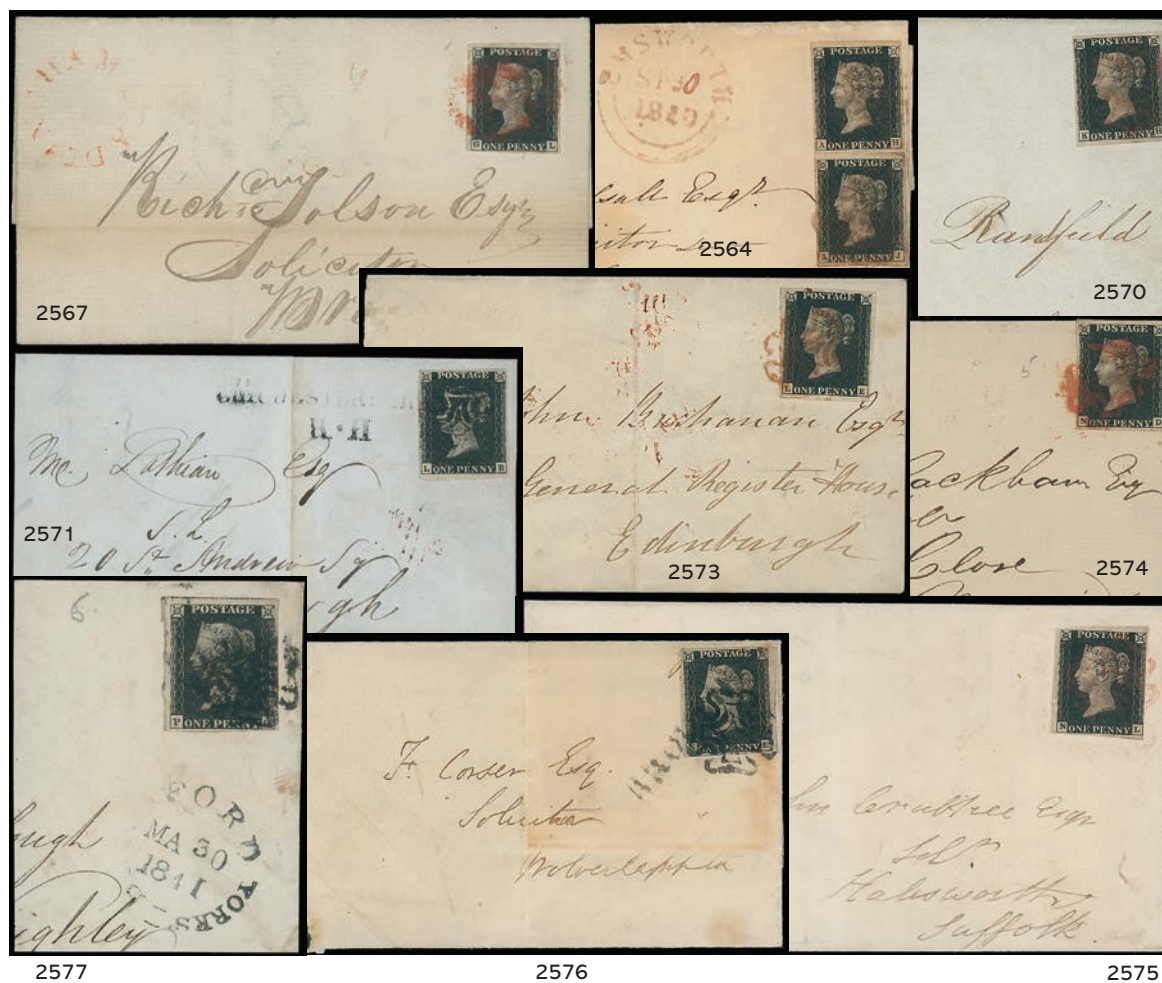 POSTAGE
G ONE PENNY L
Richd Jolson Esqr
Solicitor
2567
EMSWORTH
SP 30
1840
POSTAGE
A ONE PENNY H
POSTAGE
ONE PENNY J
Esqr
2564
POSTAGE
K ONE PENNY H
Ranfield
2570
H·H
POSTAGE
L ONE PENNY B
Mc. Lothian Esq
S.L
20 St Andrew Sq
gh
2571
POSTAGE
L ONE PENNY E
John Buchanan Esqr
General Register House
Edinburgh
2573
5
POSTAGE
N ONE PENNY D
ackham Esq
Close
2574
6
POSTAGE
P ONE PENNY
FORD YORKS
MA 30
1841
ough
ighley
2577
POSTAGE
ONE PENNY L
BRO
F. Corser Esq.
Solicitor
Wolverhampton
2576
POSTAGE
N ONE PENNY L
hn Crabtree Esqr
Solr.
Halesworth
Suffolk.
2575